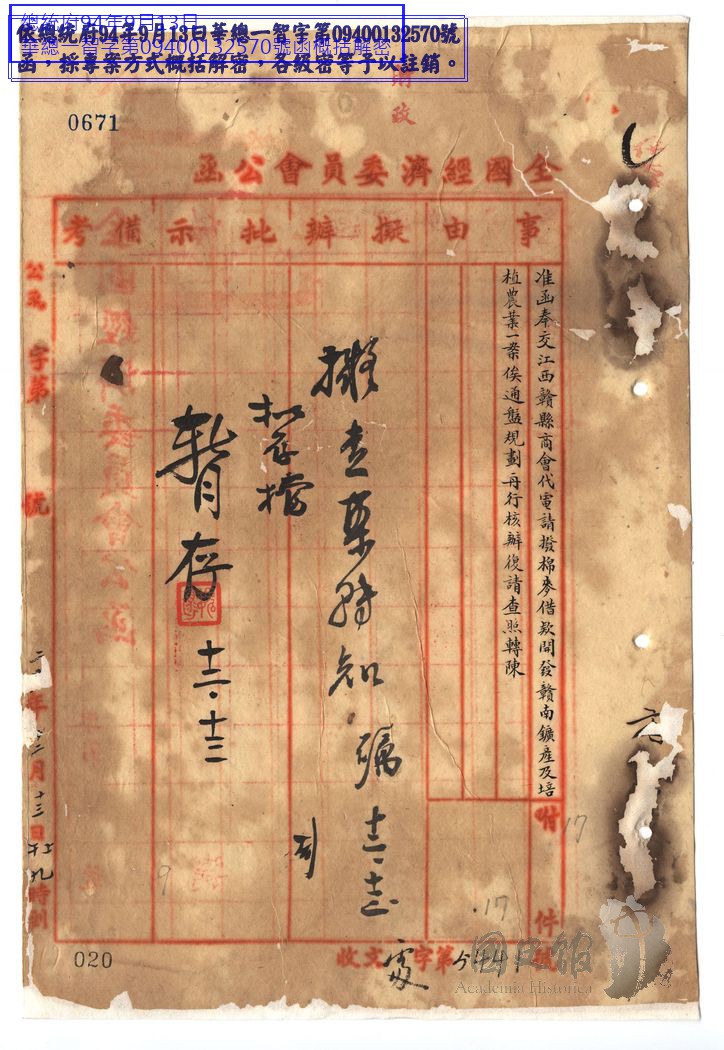 總統府94年9月13日
華總一智字第09400132570號函概括解密
依總統府94年9月13日華總一智字第09400132570號
函，採專案方式概括解密，各級密等予以註銷。
0671
財政
全國經濟委員會公函
事由
擬辦
批示
備考
准函奉交江西贛縣商會代電請撥棉麥借款開發贛南鑛產及培
植農業一案俟通盤規劃再行核辦復請查照轉陳
附件
擬查案轉知
十二.十三
暫存
十二.十三
公函 字第 號
年 月十三日 九時到
17
.17
9
收文 處字第544 號
020
國史館
Academia Historica